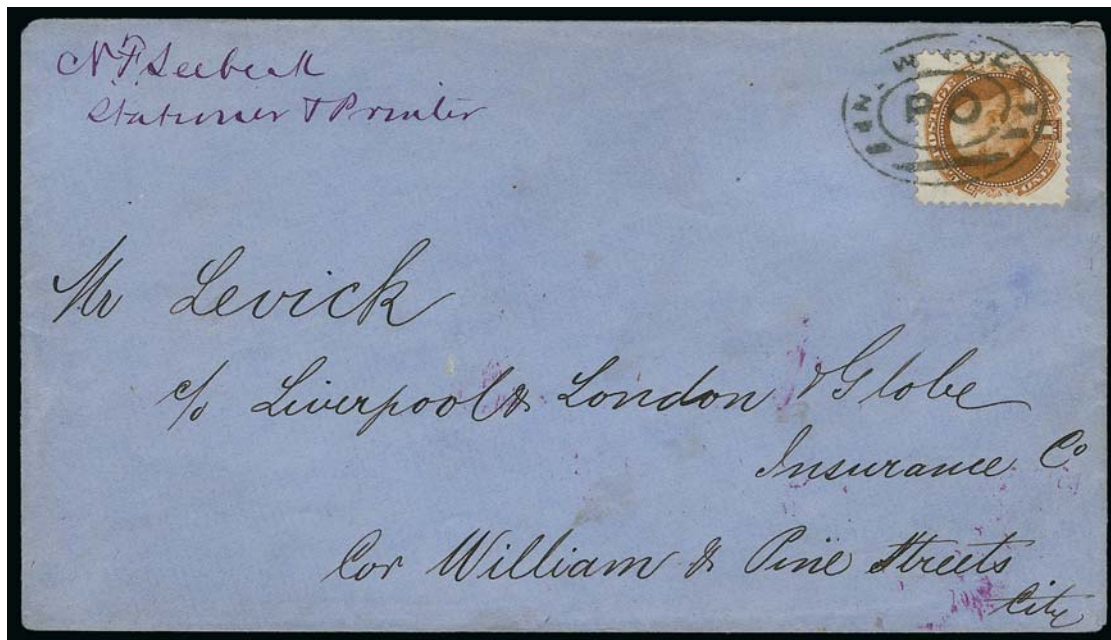 N. F. Seebeck
Stationer & Printer
NEW YORK
P O
POSTAGE
Mr Levick
c/o Liverpool & London & Globe
Insurance Co
Cor William & Pine Streets
City